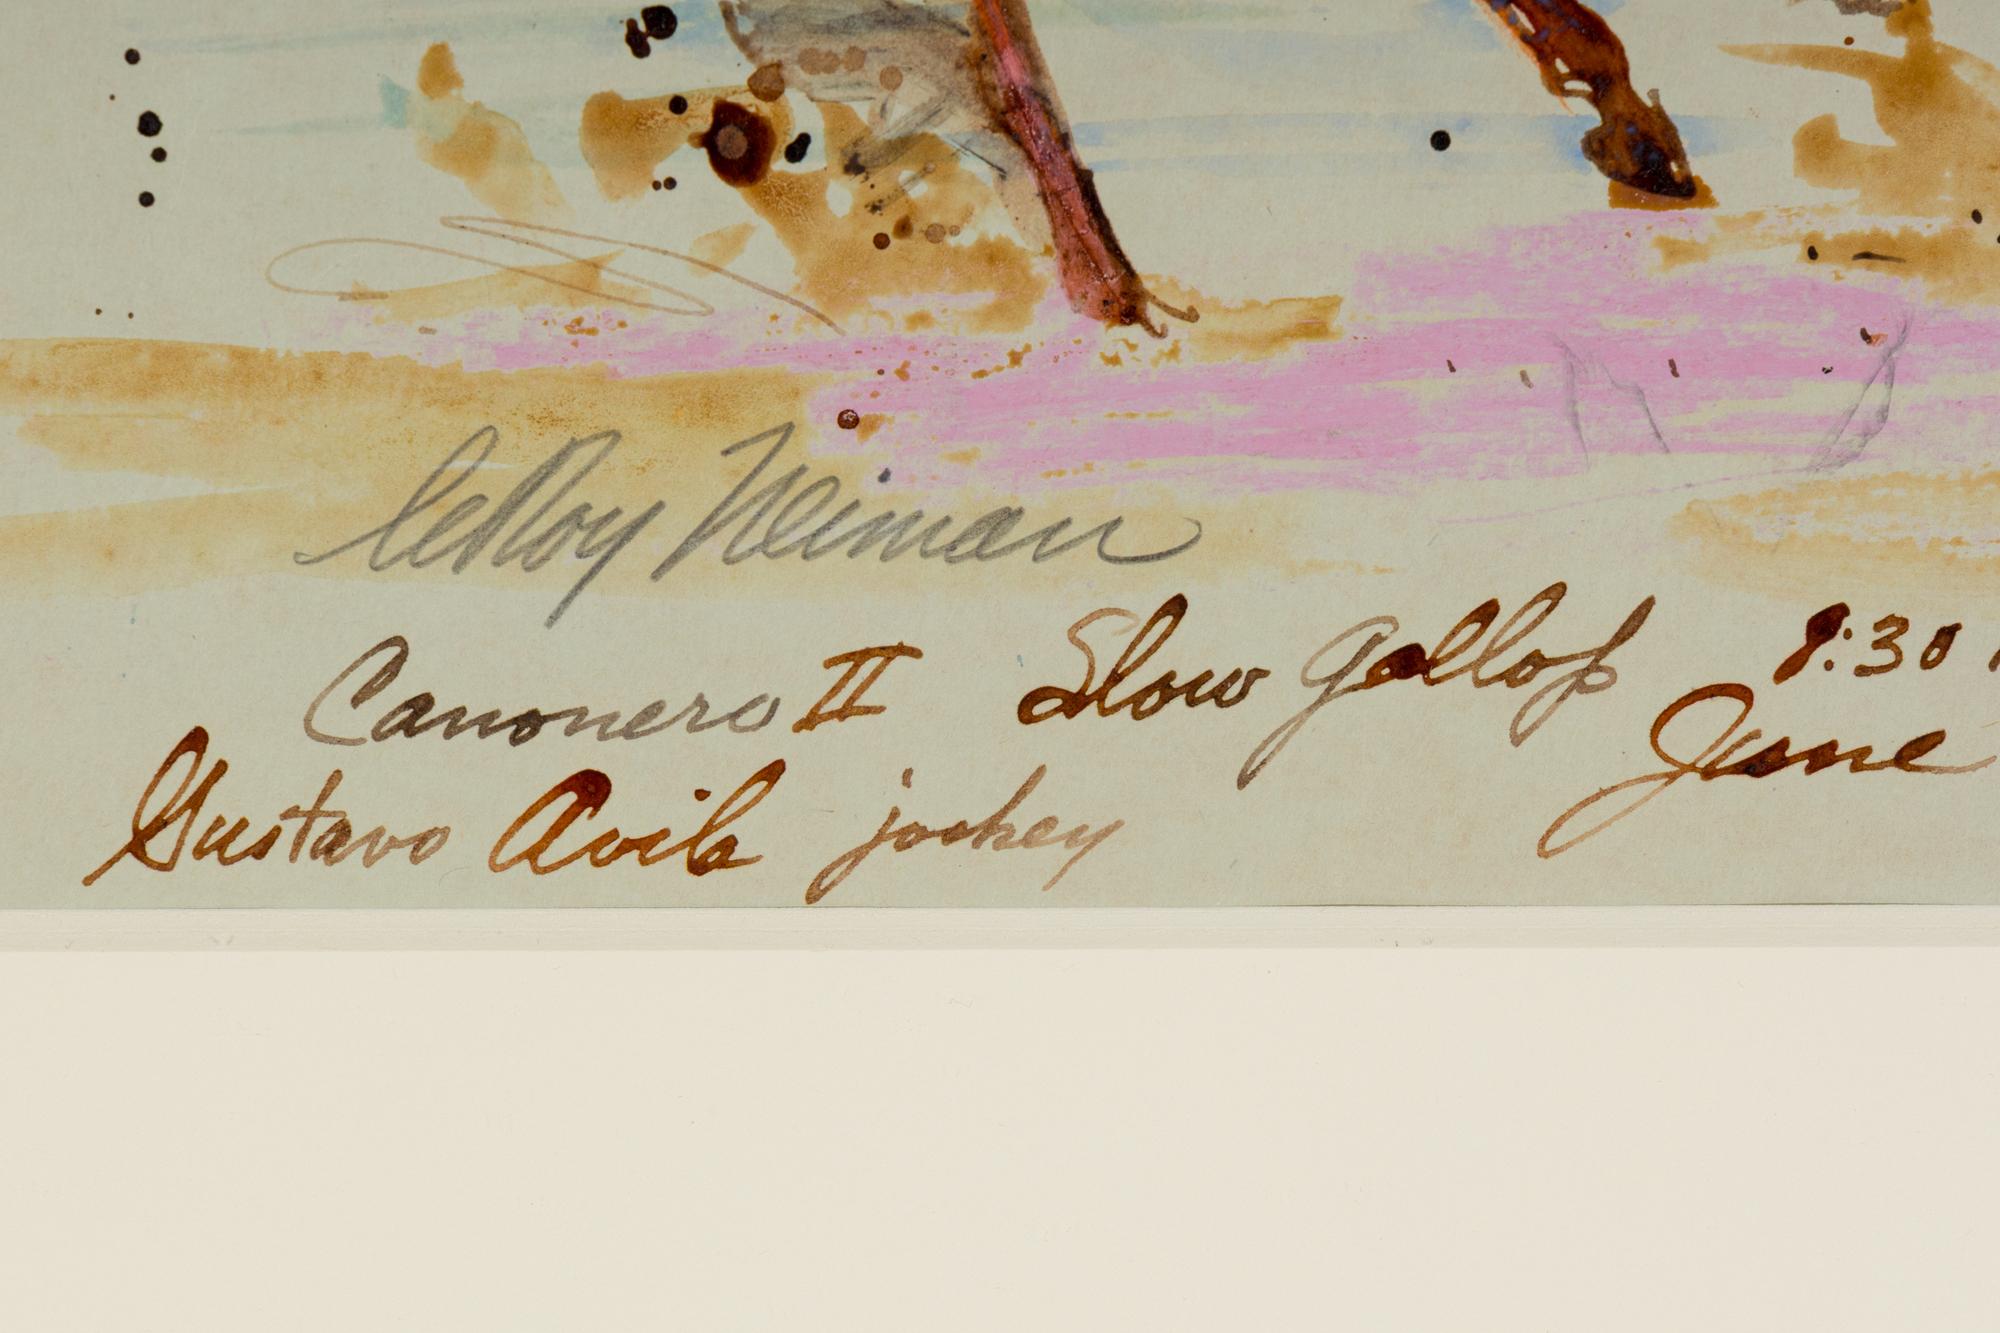 leRoy Neiman
Canonero II Slow gallop 8:30
Gustavo Avila jockey June